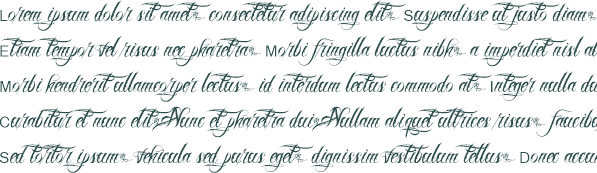 Lorem ipsum dolor sit amet, consectetur adipiscing elit. Suspendisse at justo diam.
Etiam tempor vel risus nec pharetra. Morbi fringilla luctus nibh, a imperdiet nisl at
Morbi hendrerit ullamcorper lectus, id interdum lectus commodo at. Integer nulla du
Curabitur et nunc elit. Nunc et pharetra dui. Nullam aliquet ultrices risus, faucibu
Sed tortor ipsum, vehicula sed purus eget, dignissim vestibulum tellus. Donec accu